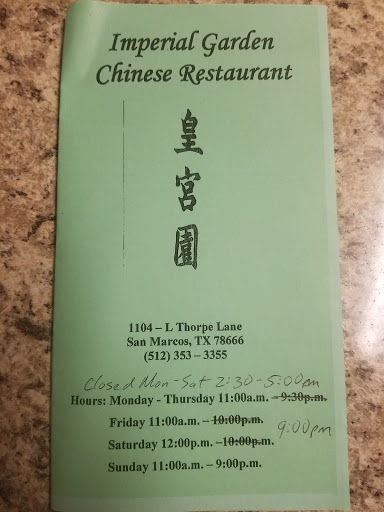 Imperial Garden
Chinese Restaurant
皇
宮
園
1104 – L Thorpe Lane
San Marcos, TX 78666
(512) 353 – 3355
Closed Mon-Sat 2:30-5:00pm
Hours: Monday - Thursday 11:00a.m. – 9:30p.m.
Friday 11:00a.m. – 10:00p.m.
9:00pm
Saturday 12:00p.m. –10:00p.m.
Sunday 11:00a.m. – 9:00p.m.